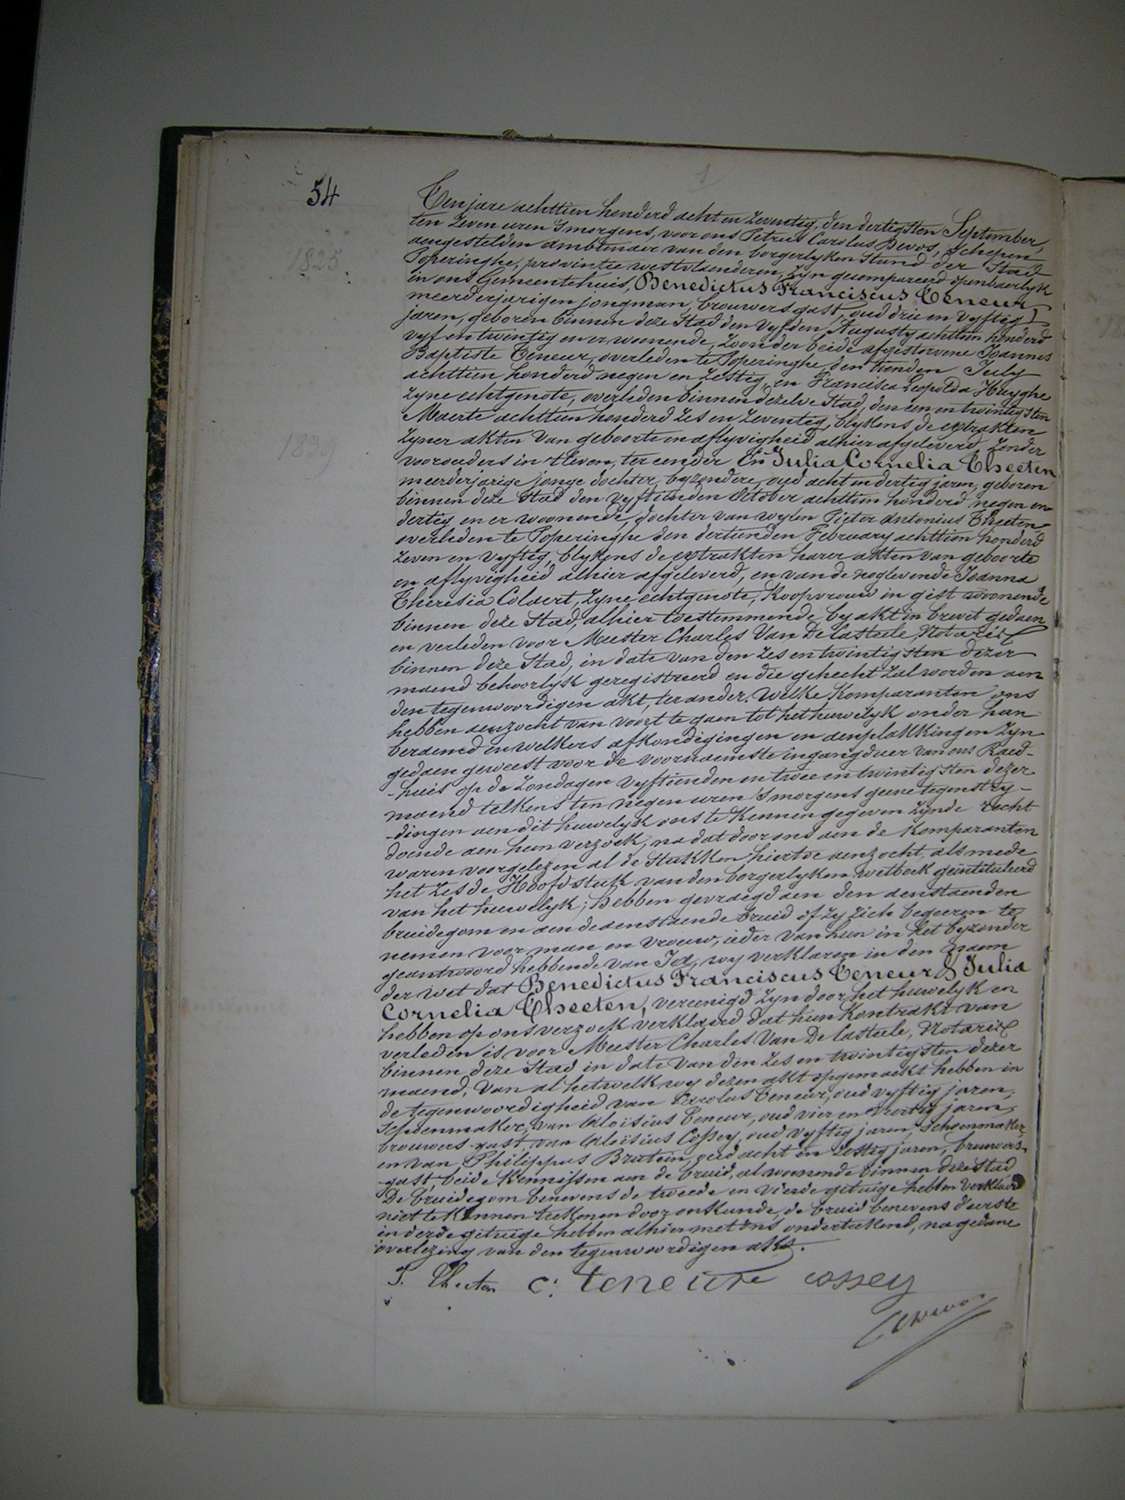 54
1825
1839
Ten jare achttien honderd acht en zeventig, den dertigsten September,
ten zeven uren 's morgens, voor ons Petrus Carolus Devos, Schepen
aengestelden ambtenaer van den borgerlyken Stand der Stad
Poperinghe, provintie westvlaenderen, zyn gecompareerd openbaerlyk
in ons Gemeentehuis, Benedictus Franciscus Teneur,
meerderjarigen jongman, brouwers gast, oud drie en vyftig
jaren, geboren binnen deze Stad den vyfden Augusty achttien honderd
vyf en twintig en er woonende, zoon der beide afgestorvene Joannes
Baptiste Teneur, overleden te Poperinghe, den tienden July
achttien honderd negen en zestig, en Francisca Leopolda Huyghe
zyne echtgenote, overleden binnen dezelve Stad, den een en twintigsten
Maerte achttien honderd zes en zeventig, blykens de extrakten
zyner akten van geboorte en aflyvigheid alhier afgeleverd, zonder
voorouders in 't leven, ter eender En Julia Cornelia Theeten
meerderjarige jonge dochter, byzondere, oud acht en dertig jaren, geboren
binnen deze Stad den vyftienden October achttien honderd negen en
dertig en er woonende, dochter van wylen Pieter Antonius Theeten,
overleden te Poperinghe den dertienden February achttien honderd
zeven en vyftig, blykens de extrakten harer akten van geboorte
en aflyvigheid alhier afgeleverd, en van de noglevende Joanna
Theresia Colaert, zyne echtgenote, koopvrouw in gist woonende
binnen deze Stad, alhier toestemmende by akt in brevet gedaen
en verleden voor Meester Charles Van De Casteele, Notaris
binnen deze Stad, in date van den zes en twintigsten dezer
maend behoorlyk geregistreerd en die gehecht zal worden aen
den tegenwoordigen akt, ter ander. Welke komparanten ons
hebben aenzocht van voort te gaen tot het huwelyk onder hun
beraemd en welkers afkondigingen en aenplakkingen zyn
gedaen geweest voor de voornaemste ingangdeur van ons Raed-
-huis op de zondagen vyftienden en twee en twintigsten dezer
maend telkens ten negen uren 's morgens geene tegenstry-
-dingen aen dit huwelyk ons te kennen gegeven zynde recht
doende aen hun verzoek; na dat door ons aen de komparanten
waren voorgelezen al de stukken hiertoe aenzocht, als mede
het zesde Hoofdstuk van den borgerlyken wetboek geintituleerd
van het huwelyk; Hebben gevraegd aen den aenstaenden
bruidegom en aen de aenstaende bruid of zy zich begeeren te
nemen voor man en vrouw, ieder van hun in het byzonder
geantwoord hebbende van Ja, wy verklaren in den naem
der wet dat Benedictus Franciscus Teneur & Julia
Cornelia Theeten, vereenigd zyn door het huwelyk en
hebben op ons verzoek verklaerd dat hun kontrakt van
verleden is voor Meester Charles Van De Casteele, Notaris
binnen deze Stad in date van den zes en twintigsten dezer
maend, Van al hetwelk wy dezen akt opgemaekt hebben in
de tegenwoordigheid van Carolus Teneur, oud vyftig jaren,
schoenmaker, van Aloisius Teneur, oud vier en veertig jaren,
brouwers-gast van Aloïsius Cossey, oud vyftig jaren, Schoenmaker
en van Philippus Brutein, oud acht en zestig jaren, brouwers-
-gast beide kennissen aen de bruid, al woonende binnen deze stad
De bruidegom benevens de tweede en vierde getuige hebben verklaerd
niet te kunnen teekenen door onkunde, de bruid benevens d'eerste
en derde getuige hebben alhier met ons onderteekend, na gedane
overlezing van den tegenwoordigen akt.
J. Theeten c: teneure cossey
Cdevos